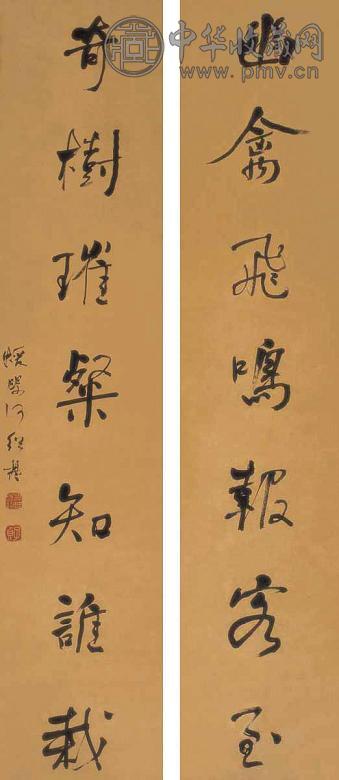 中华收藏网
www.pmv.cn
幽禽飛鳴報客至
奇樹璀粲知誰栽
蝯叟何紹基